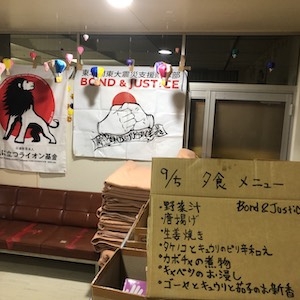 東
東大震災支援
部
BOND & JUSTICE
に立つライオン基金
9/5 夕食 メニュー
Bond & Justic
・野菜汁
・唐揚げ
・生姜焼き
・タケノコとキュウリのピリ辛和え
・カボチャの煮物
・キャベツのお浸し
・ゴーヤとキュウリと茄子のお新香